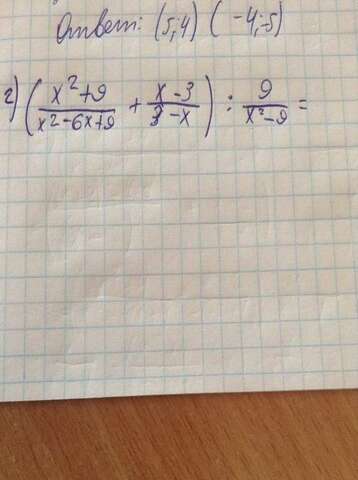 Ответ: (5;4) (-4;-5)
г) (x²+9/x²-6x+9 + x-3/3-x) : 9/x²-9 =